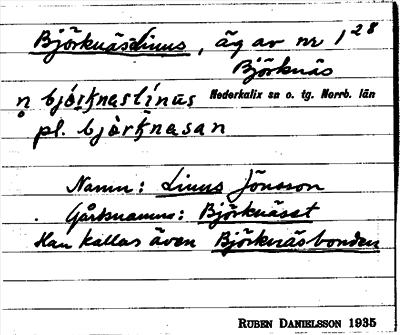 Björknäslinus, äg av nr 1²⁸
Björknäs
Nederkalix sn o. tg. Norrb. län
pl. bjòrk̬nasan
Namn: Linus Jönsson
Gårdsnamn: Björknäset
Han kallas även Björknäsbonden
RUBEN DANIELSSON 1935